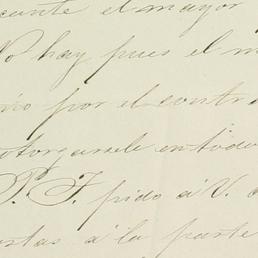 cante el mayor
No hay pues el m
rio por el contr
otorgarsele en todo
P. F. pido á V.
stas á la parte